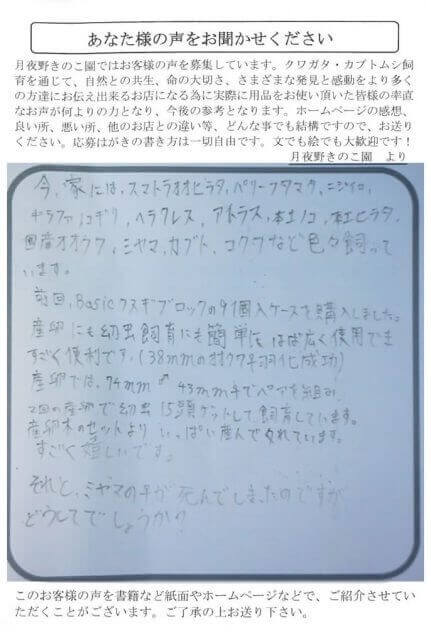 あなた様の声をお聞かせください
月夜野きのこ園ではお客様の声を募集しています。クワガタ・カブトムシ飼
育を通じて、自然との共生、命の大切さ、さまざまな発見と感動をより多く
の方達にお伝え出来るお店になる為に実際に用品をお使い頂いた皆様の率直
なお声が何よりの力となり、今後の参考となります。ホームページの感想、
良い所、悪い所、他のお店との違い等、どんな事でも結構ですので、お送り
ください。応募はがきの書き方は一切自由です。文でも絵でも大歓迎です！
月夜野きのこ園 より
今、家には、スマトラオオヒラタ、ペリーフタマタ、ニジイロ、
ギラファノコギリ、ヘラクレス、アトラス、本土ノコ、本土ヒラタ、
国産オオクワ、ミヤマ、カブト、コクワなど色々飼って
います。
前回、Basicクヌギブロックの9個入ケースを購入しました。
産卵にも幼虫飼育にも簡単に、はば広く使用でき
すごく便利です。(38mmのオオクワ羽化成功)
産卵では、74mm♂ 43mm♀でペアを組み
2回の産卵で幼虫15頭ゲットして飼育しています。
産卵木のセットより いっぱい産んでくれています。
すごく嬉しいです。
それと、ミヤマの♀が死んでしまったのですが
どうしてでしょうか?
このお客様の声を書籍など紙面やホームページなどで、ご紹介させてい
ただくことがございます。ご了承の上お送り下さい。